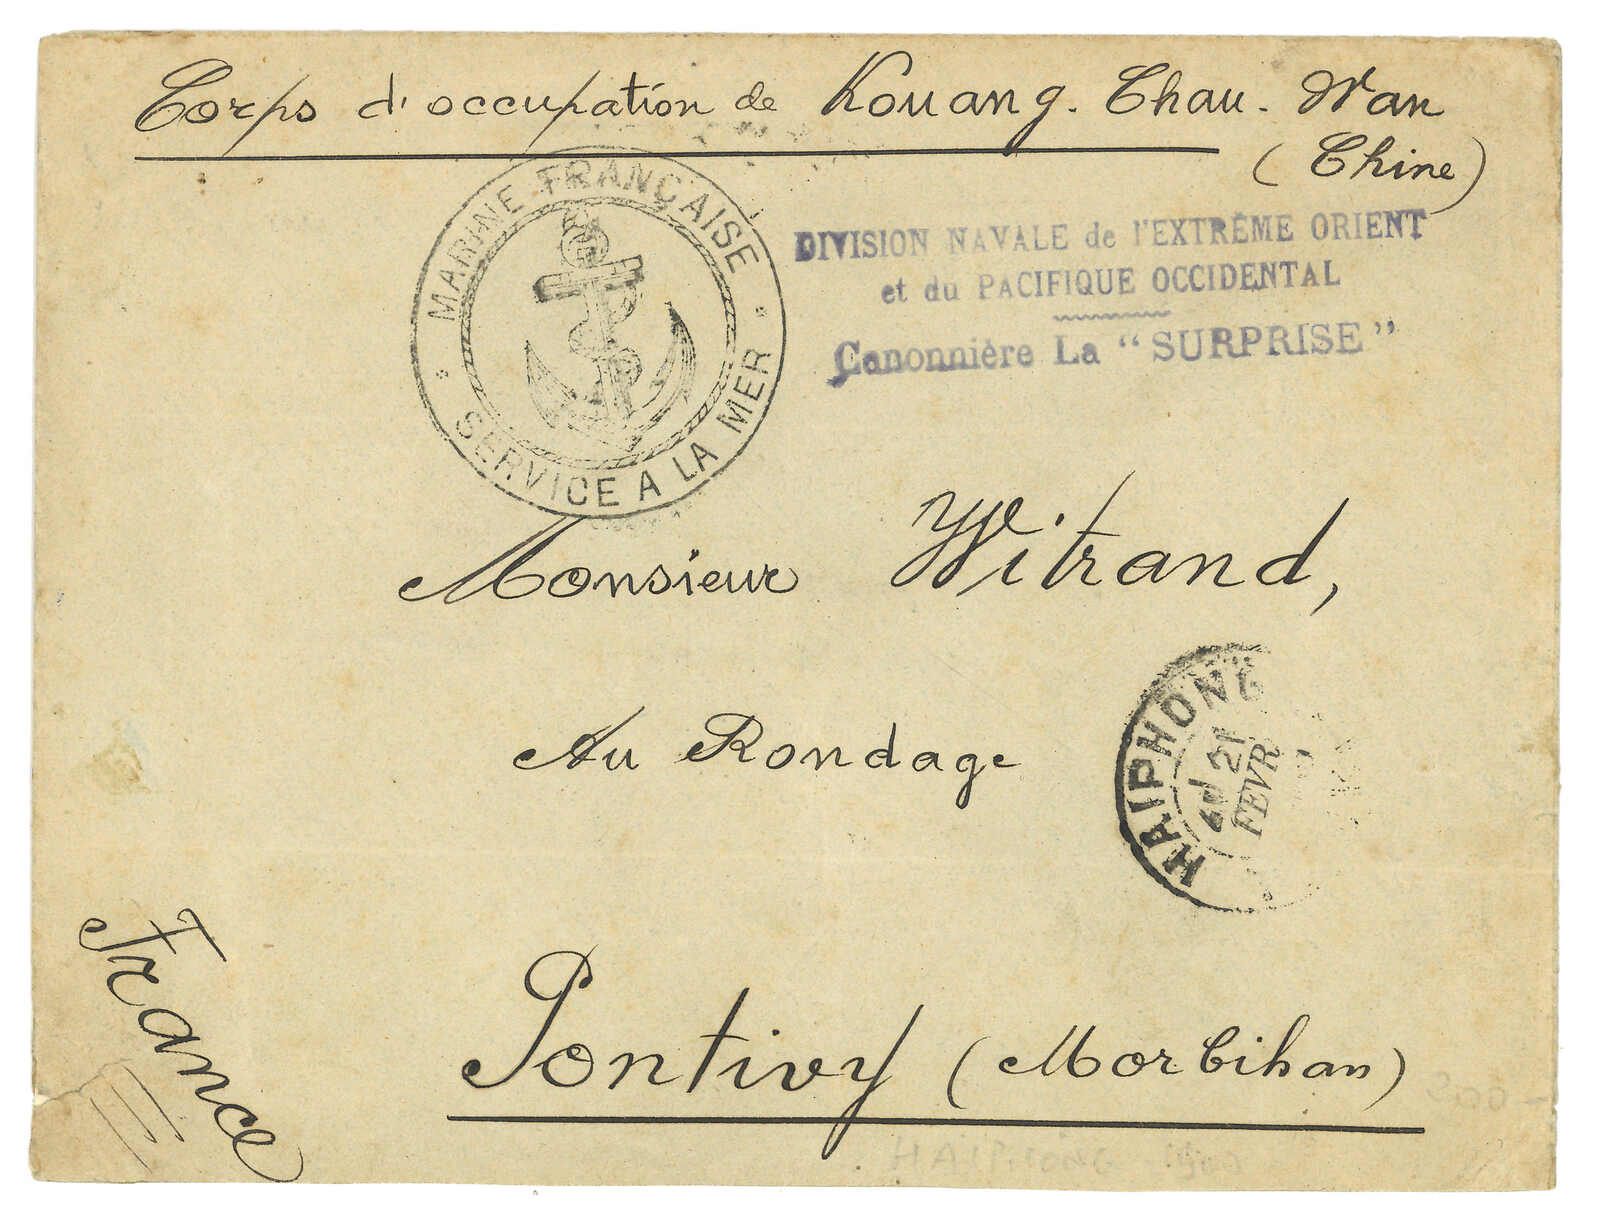 Corps d'occupation de Kouang. Tchau. Wan
(Chine)
MARINE FRANÇAISE
SERVICE A LA MER
DIVISION NAVALE de l'EXTRÊME ORIENT
et du PACIFIQUE OCCIDENTAL
Canonnière La "SURPRISE"
Monsieur Witrand,
Au Rondage
HAIPHONG
21
FEVR
Pontivy (Morbihan)
France
HAIPHONG